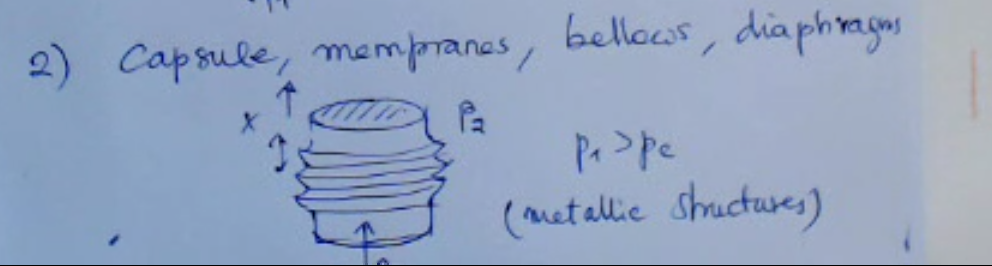 2) Capsule, mempranes, bellows, diaphragms
x
P₂
p₁ > p₂
(metallic structures)